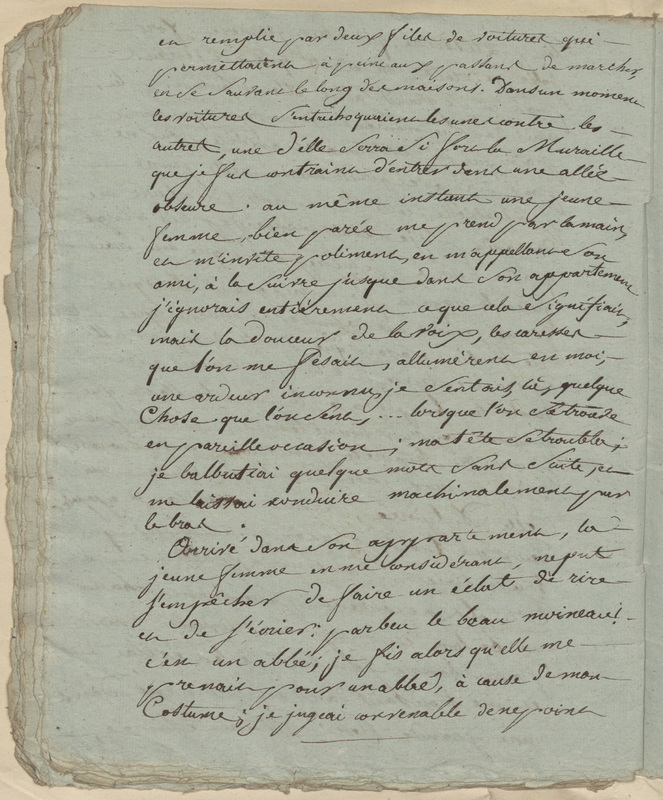 en remplie par deux files de voitures qui
permettaient à peine aux passans de marcher
en se sauvant le long des maisons. Dans un moment
les voitures s'entrechoquaient les unes contre les
autres, une d'elle serra si fort la Muraille
que je fus contraint d'entrer dans une allée
obscure. au même instant une jeune
femme, bien parée me prend par la main,
et m'invite poliment, en m'appellant son
ami, à la suivre jusque dans son appartement
j'ignorais entièrement ce que cela signifiait,
mais la douceur de la voix, les caresses
que l'on me fesait, allumèrent en moi,
une ardeur inconnue, je sentais, là, quelque
Chose que l'on sent, ... lorsque l'on se trouve
en pareille occasion; ma tête se troubla;
je balbutiai quelque mots sans suite, et
me laissai conduire machinalement par
le bras.
Arrivé dans son appartement, la
jeune femme en me considérant, ne put
s'empêcher de faire un éclat de rire
et de s'écrier: parbleu le beau moineau!
c'est un abbé; je fis alors qu'elle me
prenait pour un abbé, à cause de mon
Costume; je jugeai convenable de ne point